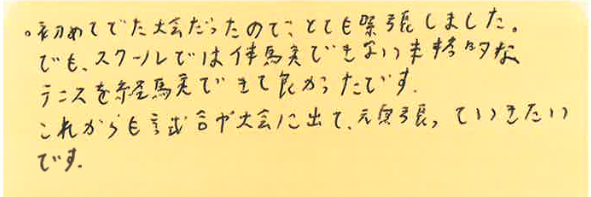 。初めてでた大会だったので、とても緊張しました。
でも、スクールでは体験できない本格的な
テニスを経験できて良かったです。
これからも試合や大会に出て、頑張っていきたい
です。